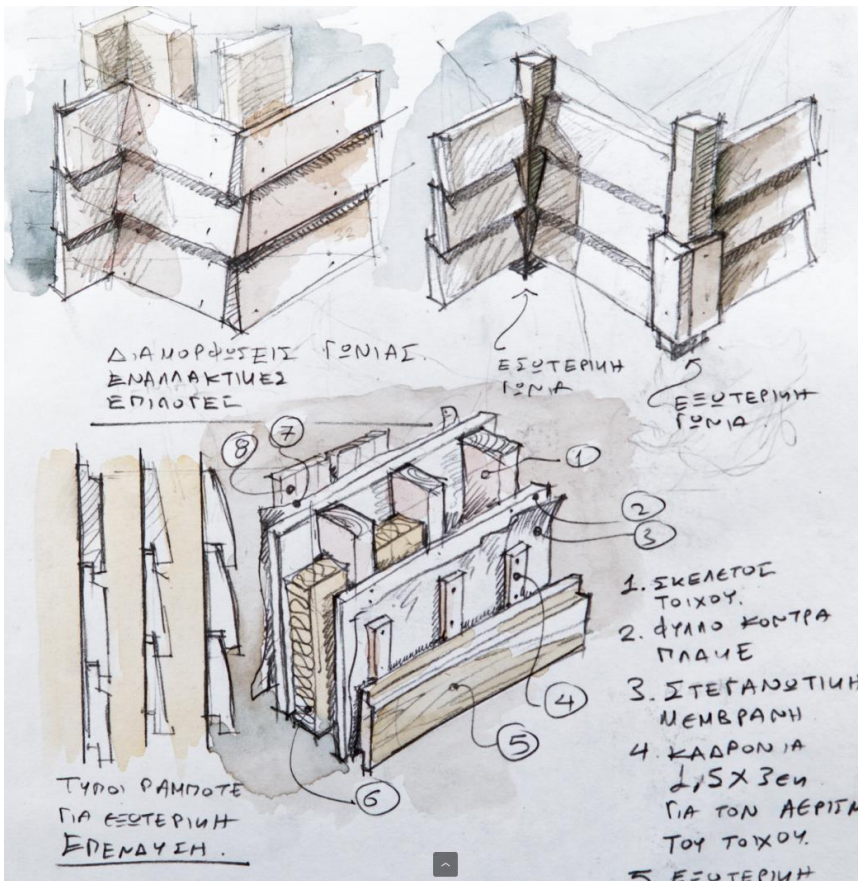 ΔΙΑΜΟΡΦΩΣΕΙΣ ΓΩΝΙΑΣ.
ΕΝΑΛΛΑΚΤΙΚΕΣ
ΕΠΙΛΟΓΕΣ
ΕΣΩΤΕΡΙΚΗ
ΓΩΝΙΑ
ΕΞΩΤΕΡΙΚΗ
ΓΩΝΙΑ
8
7
1
2
3
4
5
6
ΤΥΠΟΙ ΡΑΜΠΟΤΕ
ΓΙΑ ΕΞΩΤΕΡΙΚΗ
ΕΠΕΝΔΥΣΗ.
1. ΣΚΕΛΕΤΟΣ
ΤΟΙΧΟΥ.
2. ΦΥΛΛΟ ΚΟΝΤΡΑ
ΠΛΑΚΕ
3. ΣΤΕΓΑΝΩΤΙΚΗ
ΜΕΜΒΡΑΝΗ
4. ΚΑΔΡΟΝΙΑ
1,5X3εκ
ΓΙΑ ΤΟΝ ΑΕΡΙΣΜ
ΤΟΥ ΤΟΙΧΟΥ.
5. ΕΞΩΤΕΡΙΚΗ